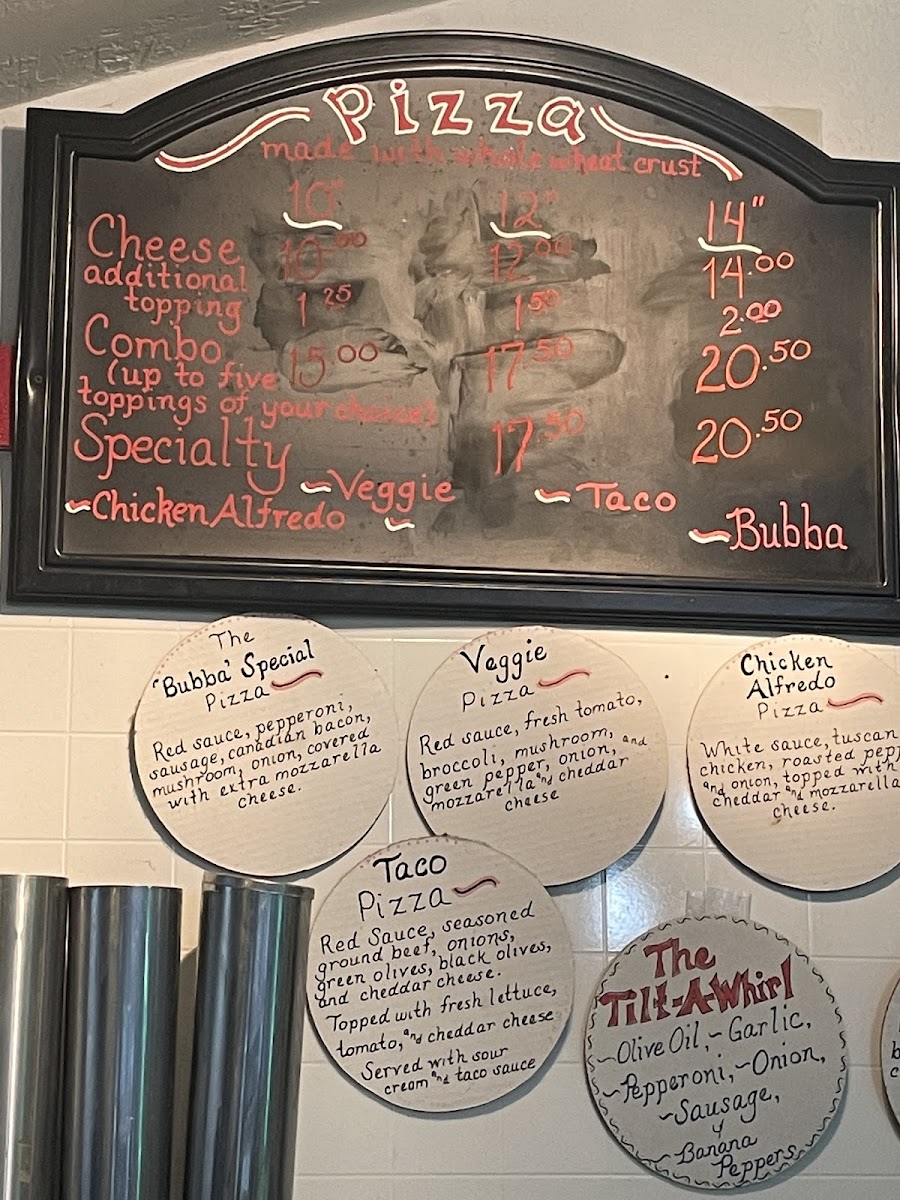 Pizza
made with whole wheat crust
10" 12" 14"
Cheese 10.00 12.00 14.00
additional
topping 1.25 1.50 2.00
Combo 15.00 17.50 20.50
(up to five
toppings of your choice)
Specialty 17.50 20.50
~Veggie ~Taco
~Chicken Alfredo ~ ~Bubba
The
'Bubba' Special
Pizza
Red sauce, pepperoni,
sausage, canadian bacon,
mushroom, onion, covered
with extra mozzarella
cheese.
Veggie
Pizza
Red sauce, fresh tomato,
broccoli, mushroom, and
green pepper, onion,
mozzarella and cheddar
cheese
Chicken
Alfredo
Pizza
White sauce, tuscan
chicken, roasted pepp
and onion, topped with
cheddar and mozzarella
cheese.
Taco
Pizza
Red Sauce, seasoned
ground beef, onions,
green olives, black olives,
and cheddar cheese.
Topped with fresh lettuce,
tomato, and cheddar cheese
Served with sour
cream and taco sauce
The
Tilt-A-Whirl
~Olive Oil, ~Garlic,
~Pepperoni, ~Onion,
~Sausage,
~Banana
Peppers